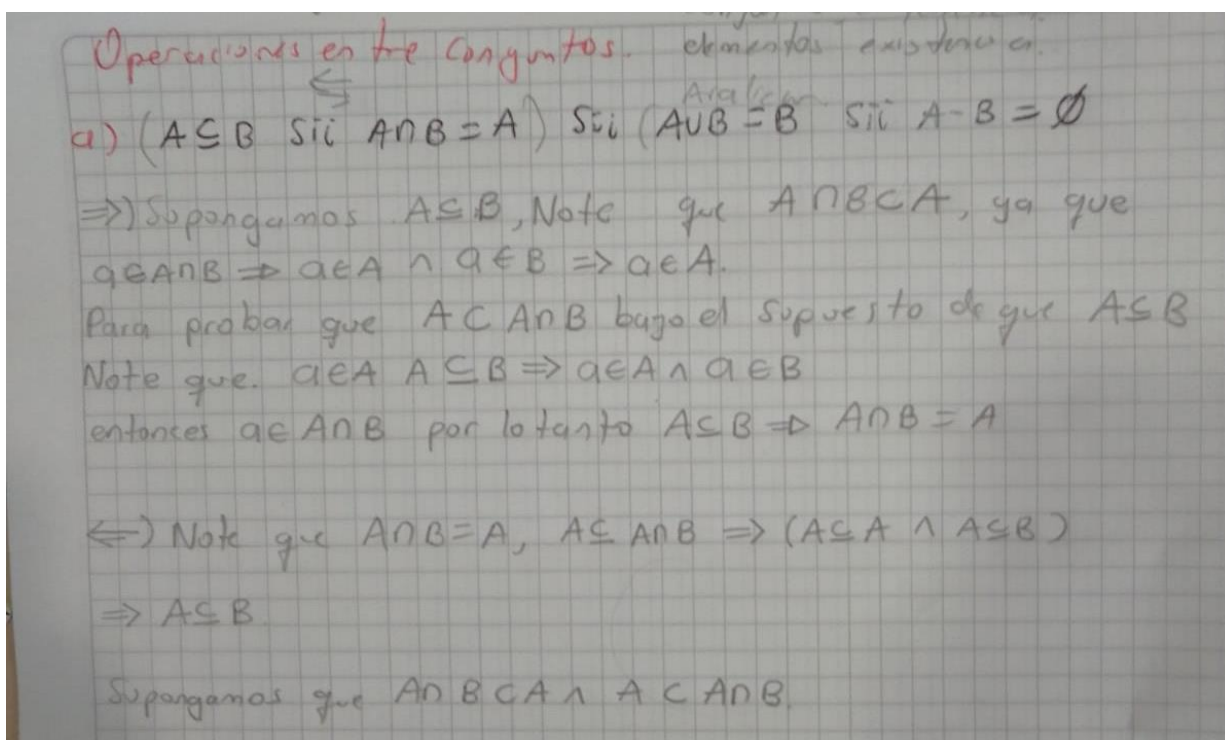 Operaciones entre Conguntos. elementos existencia.
⇆
a) (A⊆B Sii A∩B=A) Sii (A∪B=B Sii A-B=∅
⇒) Supongamos A⊆B, Note que A∩B⊂A, ya que
a∈A∩B ⇒ a∈A ∧ a∈B ⇒ a∈A.
Para probar que A⊂A∩B bago el supuesto de que A⊆B
Note que. a∈A A⊆B ⇒ a∈A ∧ a∈B
entonces a∈A∩B por lo tanto A⊆B ⇒ A∩B=A
⇐) Note que A∩B=A, A⊆A∩B ⇒ (A⊆A ∧ A⊆B)
⇒ A⊆B
Supongamos que A∩B⊂A ∧ A⊂A∩B